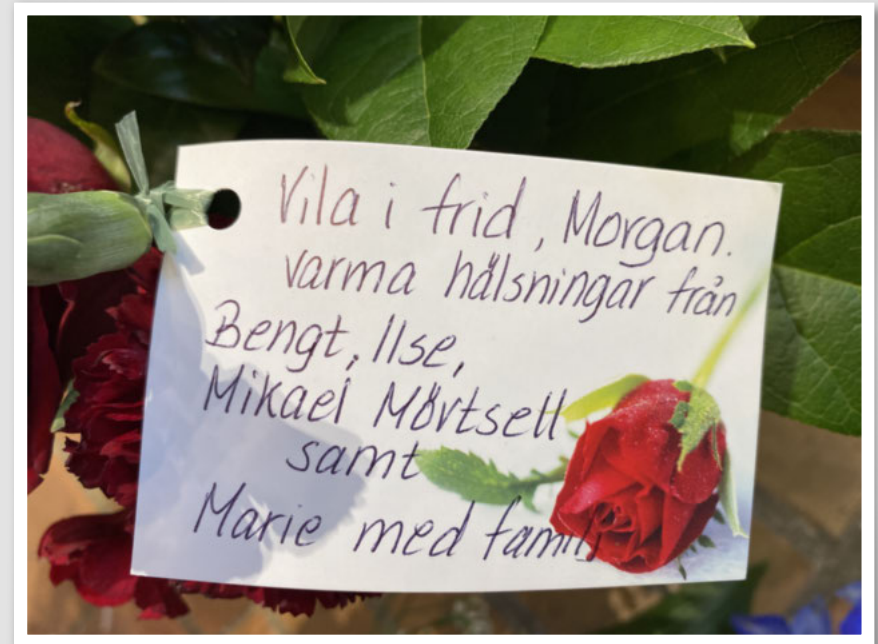 Vila i frid, Morgan.
varma hälsningar från
Bengt, Ilse,
Mikael Mörtsell
samt
Marie med familj